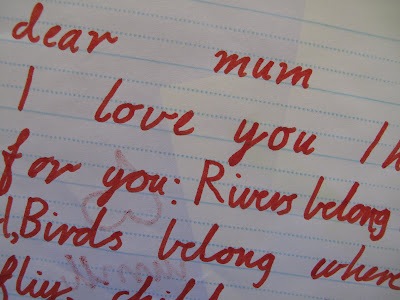 dear mum
I love you
for you: Rivers belong
Birds belong where
fliy.